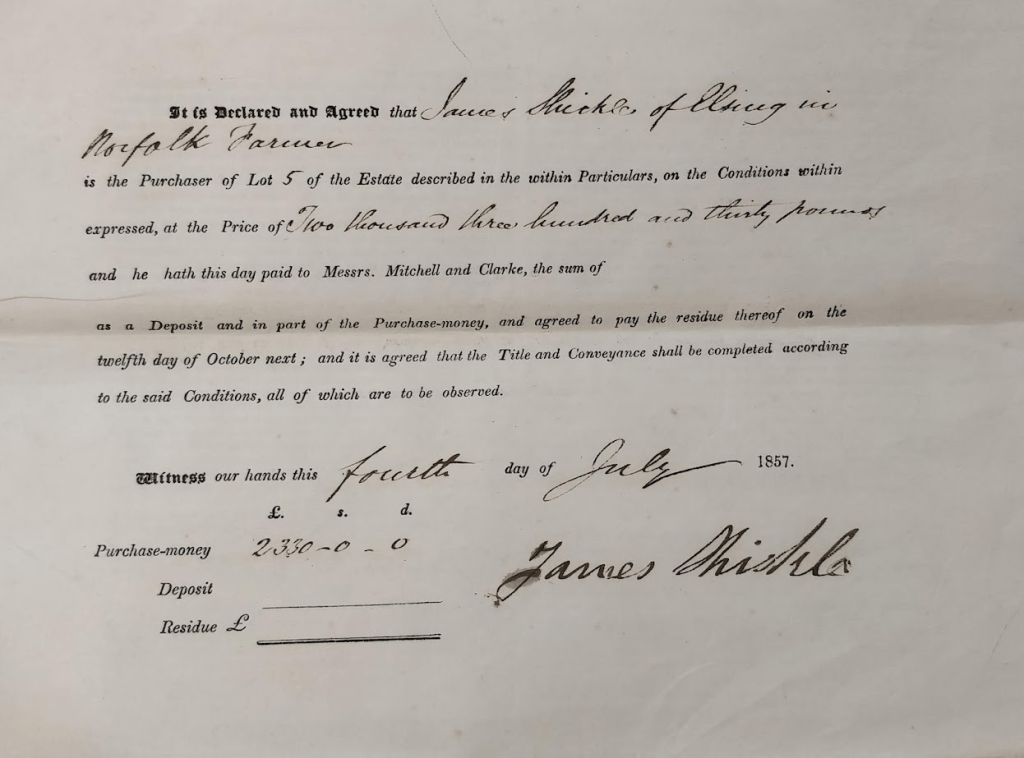 It is Declared and Agreed that James Shickle of Elsing in
Norfolk Farmer
is the Purchaser of Lot 5 of the Estate described in the within Particulars, on the Conditions within
expressed, at the Price of Two thousand three hundred and thirty pounds
and he hath this day paid to Messrs. Mitchell and Clarke, the sum of
as a Deposit and in part of the Purchase-money, and agreed to pay the residue thereof on the
twelfth day of October next; and it is agreed that the Title and Conveyance shall be completed according
to the said Conditions, all of which are to be observed.
Witness our hands this fourth day of July 1857.
£. s. d.
Purchase-money 2330-0-0
James Shickle
Deposit
Residue £